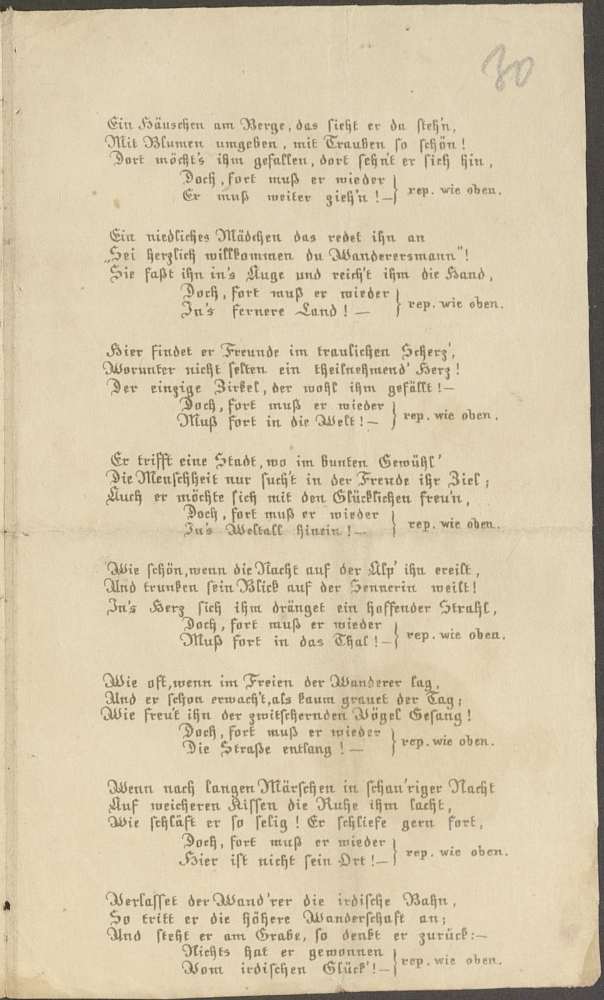 30
Ein Häuschen am Berge, das sieht er da steh'n,
Mit Blumen umgeben, mit Trauben so schön!
Dort möcht's ihm gefallen, dort sehn't er sich hin,
Doch, fort muß er wieder
Er muß weiter zieh'n! — } rep. wie oben.
Ein niedliches Mädchen das redet ihn an
„Sei herzlich willkommen du Wanderersmann"!
Sie faßt ihn in's Auge und reich't ihm die Hand,
Doch, fort muß er wieder
In's fernere Land! — } rep. wie oben.
Hier findet er Freunde im traulichen Scherz',
Worunter nicht selten ein theilnehmend' Herz!
Der einzige Zirkel, der wohl ihm gefällt! —
Doch, fort muß er wieder
Muß fort in die Welt! — } rep. wie oben.
Er trifft eine Stadt, wo im bunten Gewühl'
Die Menschheit nur such't in der Freude ihr Ziel;
Auch er möchte sich mit den Glücklichen freu'n,
Doch, fort muß er wieder
In's Weltall hinein! — } rep. wie oben.
Wie schön, wenn die Nacht auf der Alp' ihn ereilt,
Und trunken sein Blick auf der Sennerin weilt!
In's Herz sich ihm dränget ein hoffender Strahl,
Doch, fort muß er wieder
Muß fort in das Thal! — } rep. wie oben.
Wie oft, wenn im Freien der Wanderer lag,
Und er schon erwach't, als kaum grauet der Tag;
Wie freu't ihn der zwitschernden Vögel Gesang!
Doch, fort muß er wieder
Die Straße entlang! — } rep. wie oben.
Wenn nach langen Märschen in schau'riger Nacht
Auf weicheren Kissen die Ruhe ihm lacht,
Wie schläft er so selig! Er schliefe gern fort,
Doch, fort muß er wieder
Hier ist nicht sein Ort! — } rep. wie oben.
Verlasset der Wand'rer die irdische Bahn,
So tritt er die höhere Wanderschaft an;
Und steht er am Grabe, so denkt er zurück: —
Nichts hat er gewonnen
Vom irdischen Glück'! — } rep. wie oben.